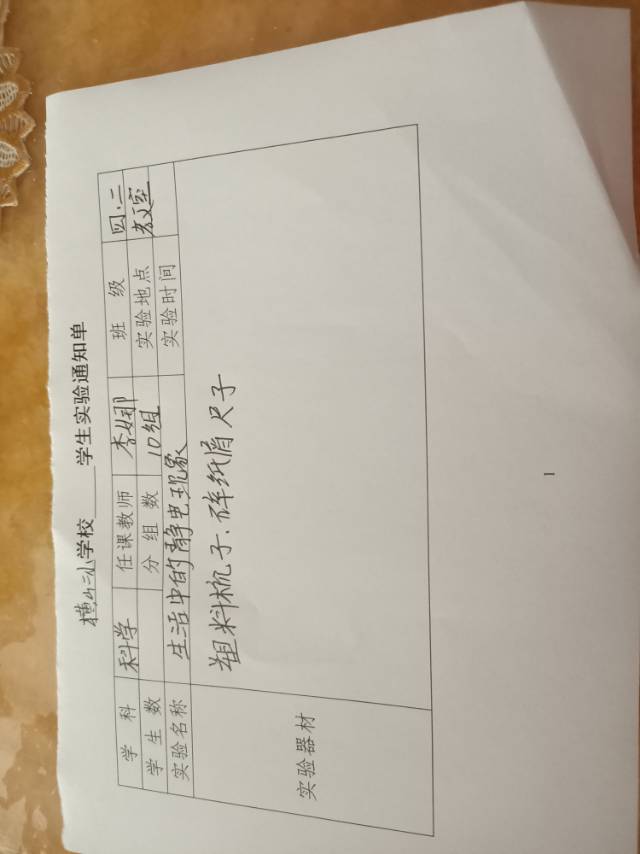 横山三小学校____学生实验通知单
学 科 科学 任课教师 李娜 班 级 四.二
学 生 数 分 组 数 10组 实验地点 教室
实验名称 生活中的静电现象 实验时间
实验器材 塑料梳子.碎纸屑 尺子
1